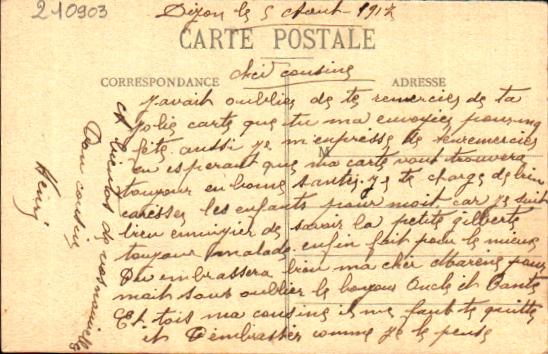 210903
Dizon le 5 Aout 1912
CARTE POSTALE
CORRESPONDANCE
ADRESSE
cher cousine
J'avait oublier de te remercier de ta
Jolie carte que tu ma envoyez pour ma
fête aussi je m'enpresse de
en esperant que ma carte vous trouvera
toujour en bonne santer. Je te charge de bien
caresser les enfants pour moit car je suit
bien ennuyier de savoir la petite gilberte
toujour malade enfin fait pour le mieux
Du embrassera bien ma cher pour
moit sous oublier le bonjour Oncle et Tante
Et tois ma cousine il me faut te quitter
et T'embrasser comme je le pense
et bientot de vos nouvelles
Don cousin
Henri